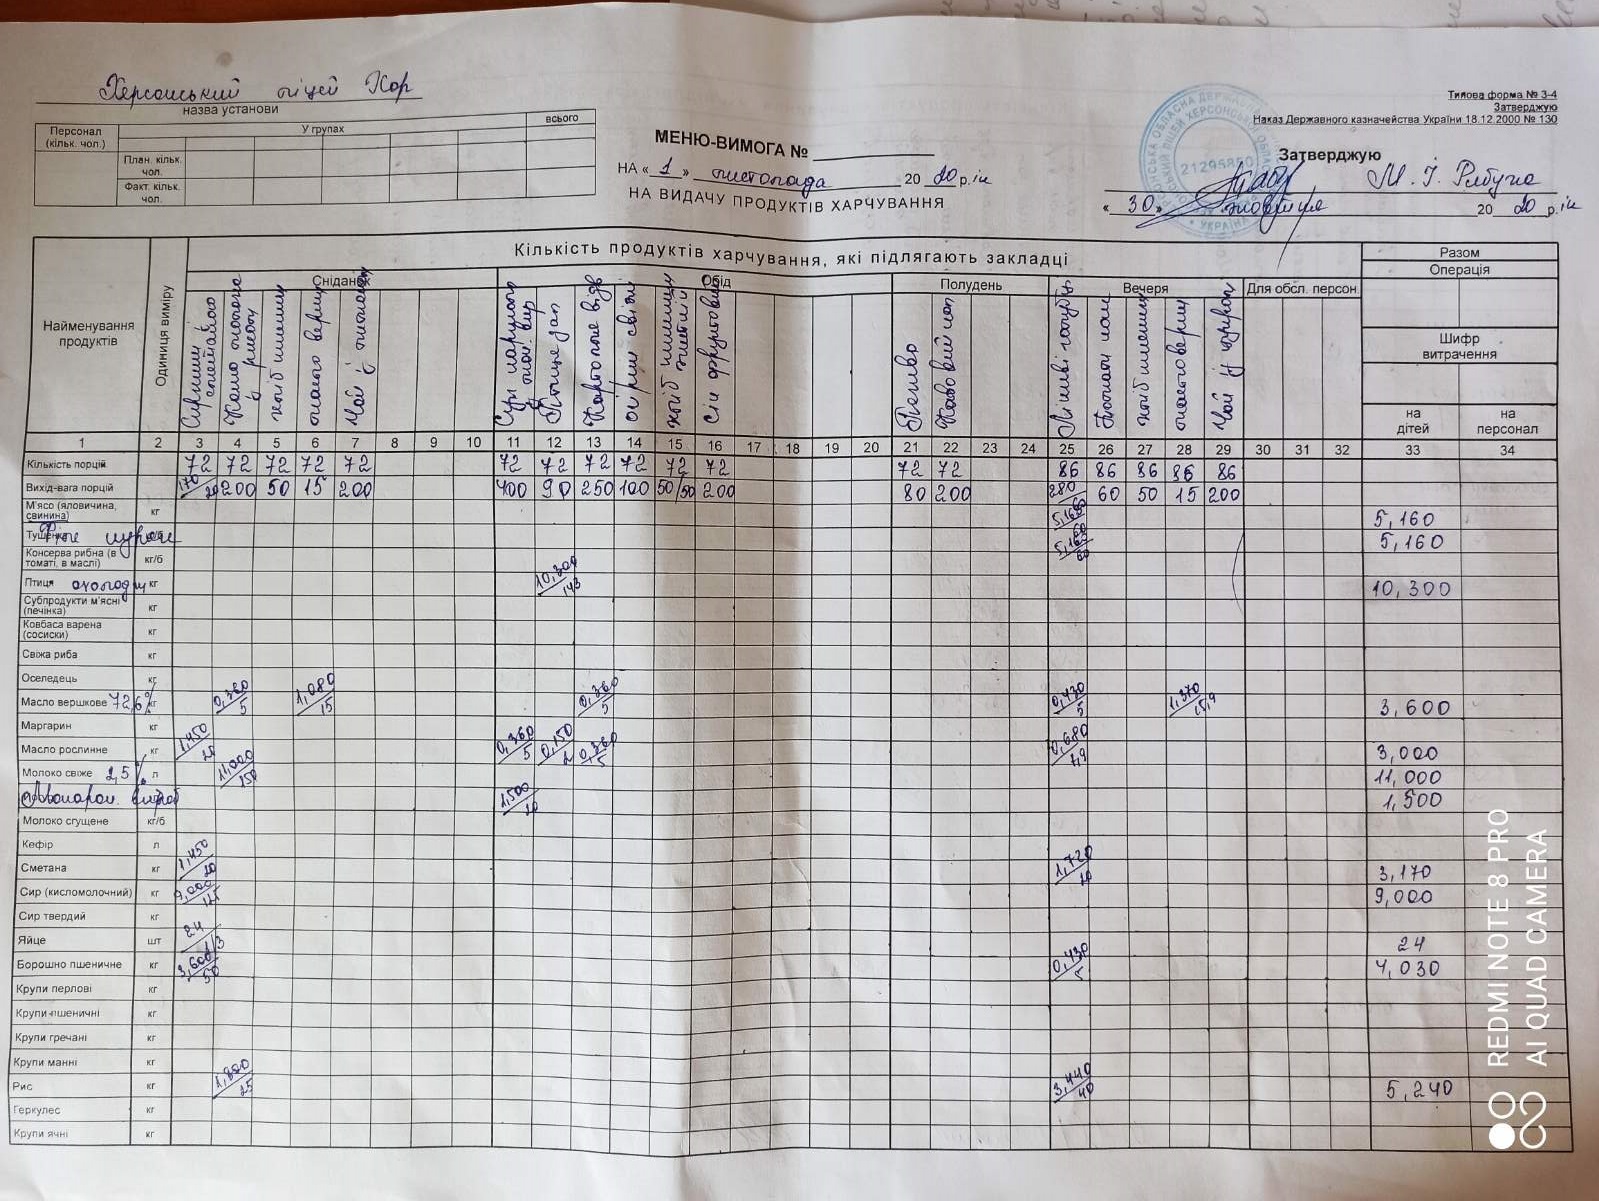 Херсонський ліцей ХОР
назва установи
Персонал (кільк. чол.)
У групах
всього
План. кільк. чол.
Факт. кільк. чол.
МЕНЮ-ВИМОГА №
НА « 1 » листопада 20 20 р.
НА ВИДАЧУ ПРОДУКТІВ ХАРЧУВАННЯ
Типова форма № 3-4
Затверджую
Наказ Державного казначейства України 18.12.2000 № 130
Затверджую
М. І. Рябуха
« 30 » жовтня 20 20 р.
21295850
УКРАЇНА
Найменування продуктів
Одиниця виміру
Кількість продуктів харчування, які підлягають закладці
Разом
Операція
Шифр витрачення
на дітей
на персонал
Сніданок
Обід
Полудень
Вечеря
Для обсл. персон.
Сирники
Каша молочна з рису
Хліб пшенич
Масло верш
Чай з лимоном
Птиця зап
Картопляне
Огірки свіжі
Сік фруктовий
Печиво
Кавовий нап
Ліниві голубці
Хліб пшенич
Масло верш
Чай із цукром
1 2 3 4 5 6 7 8 9 10 11 12 13 14 15 16 17 18 19 20 21 22 23 24 25 26 27 28 29 30 31 32 33 34
Кількість порцій 72 72 72 72 72 72 72 72 72 72 72 72 72 86 86 86 86 86
Вихід-вага порцій 170/20 200 50 15 200 400 90 250 100 50/50 200 80 200 280 60 50 15 200
М'ясо (яловичина, свинина) кг 5,160/60 5,160
Тушенка кг/б 5,160/60 5,160
Консерва рибна (в томаті, в маслі) кг/б
Птиця охолодж кг 10,300/143 10,300
Субпродукти м'ясні (печінка) кг
Ковбаса варена (сосиски) кг
Свіжа риба кг
Оселедець кг
Масло вершкове 72,6% кг 0,360/5 1,080/15 0,360/5 0,430/5 1,370/15,9 3,600
Маргарин кг
Масло рослинне кг 1,450/20 0,360/5 0,150/2 0,360/5 0,680/7,9 3,000
Молоко свіже 2,5% л 11,000/150 11,000
Макарон. вироб 1,500/20 1,500
Молоко сгущене кг/б
Кефір л
Сметана кг 1,450/20 1,720/20 3,170
Сир (кисломолочний) кг 9,000/125 9,000
Сир твердий кг
Яйце шт 24 1/3 24
Борошно пшеничне кг 3,600/50 0,430/5 4,030
Крупи перлові кг
Крупи пшеничні кг
Крупи гречані кг
Крупи манні кг
Рис кг 1,800/25 3,440/40 5,240
Геркулес кг
Крупи ячні кг
REDMI NOTE 8 PRO
AI QUAD CAMERA